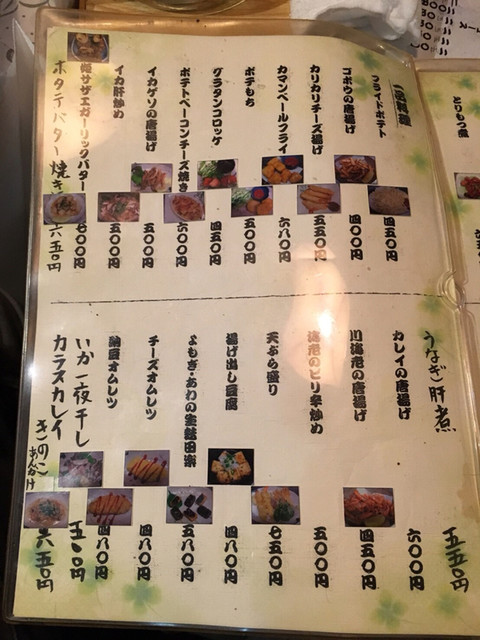 一品料理
フライドポテト 四五〇円
ゴボウの唐揚げ 四〇〇円
カリカリチーズ揚げ 五五〇円
カマンベールフライ 六八〇円
ポテもち 五〇〇円
グラタンコロッケ 四五〇円
ポテトベーコンチーズ焼き 六〇〇円
イカゲソの唐揚げ 五〇〇円
イカ肝炒め 五〇〇円
姫サザエガーリックバター 七〇〇円
ホタテバター焼き 六五〇円
うなぎ肝煮 五五〇円
カレイの唐揚げ 六〇〇円
川海老の唐揚げ 四五〇円
海老のピリ辛炒め 五〇〇円
天ぷら盛り 七五〇円
揚げ出し豆腐 四八〇円
よもぎ・あわの生麩田楽 五八〇円
チーズオムレツ 四八〇円
納豆オムレツ 四八〇円
いか一夜干し 五〇〇円
カラスカレイ
きのこあんかけ 六五〇円
とりもつ煮